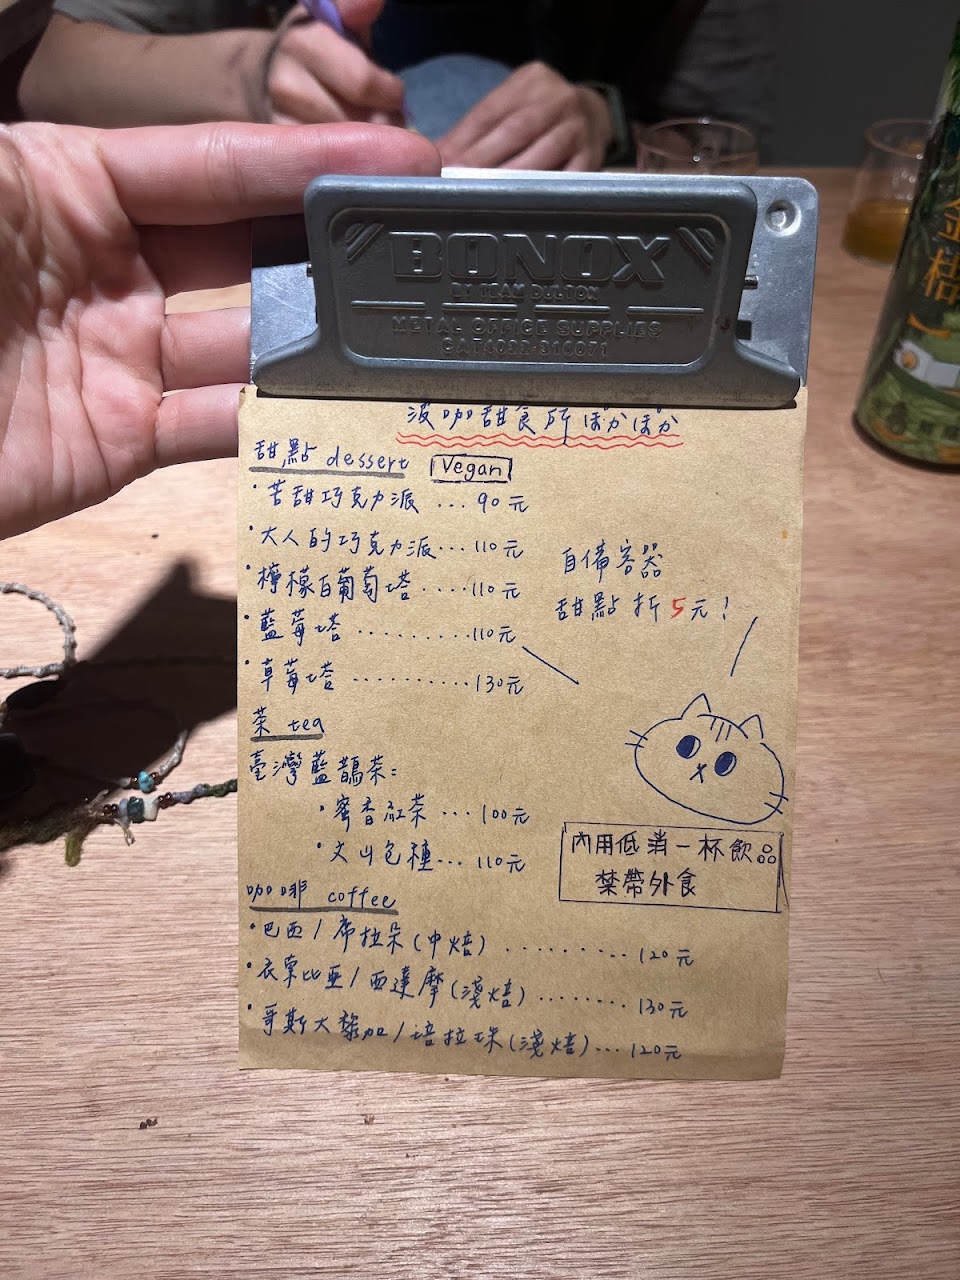 BONOX
BY TEAM DULTON
METAL OFFICE SUPPLIES
CAT4022-310071
波咖甜食所ぽかぽか
甜點 dessert Vegan
·苦甜巧克力派 ... 90元
·大人的巧克力派...110元
·檸檬白葡萄塔 ....110元
·藍莓塔 .........110元
·草莓塔 ..........130元
自備容器
甜點折5元!
茶 tea
臺灣藍鵲茶:
·蜜香紅茶 ...100元
·文山包種...110元
內用低消一杯飲品
禁帶外食
咖啡 coffee
·巴西/席拉朵(中焙) ......... 120元
·衣索比亞/西達摩(淺焙)........ 130元
·哥斯大黎加/培拉珠(淺焙)... 120元
金桔